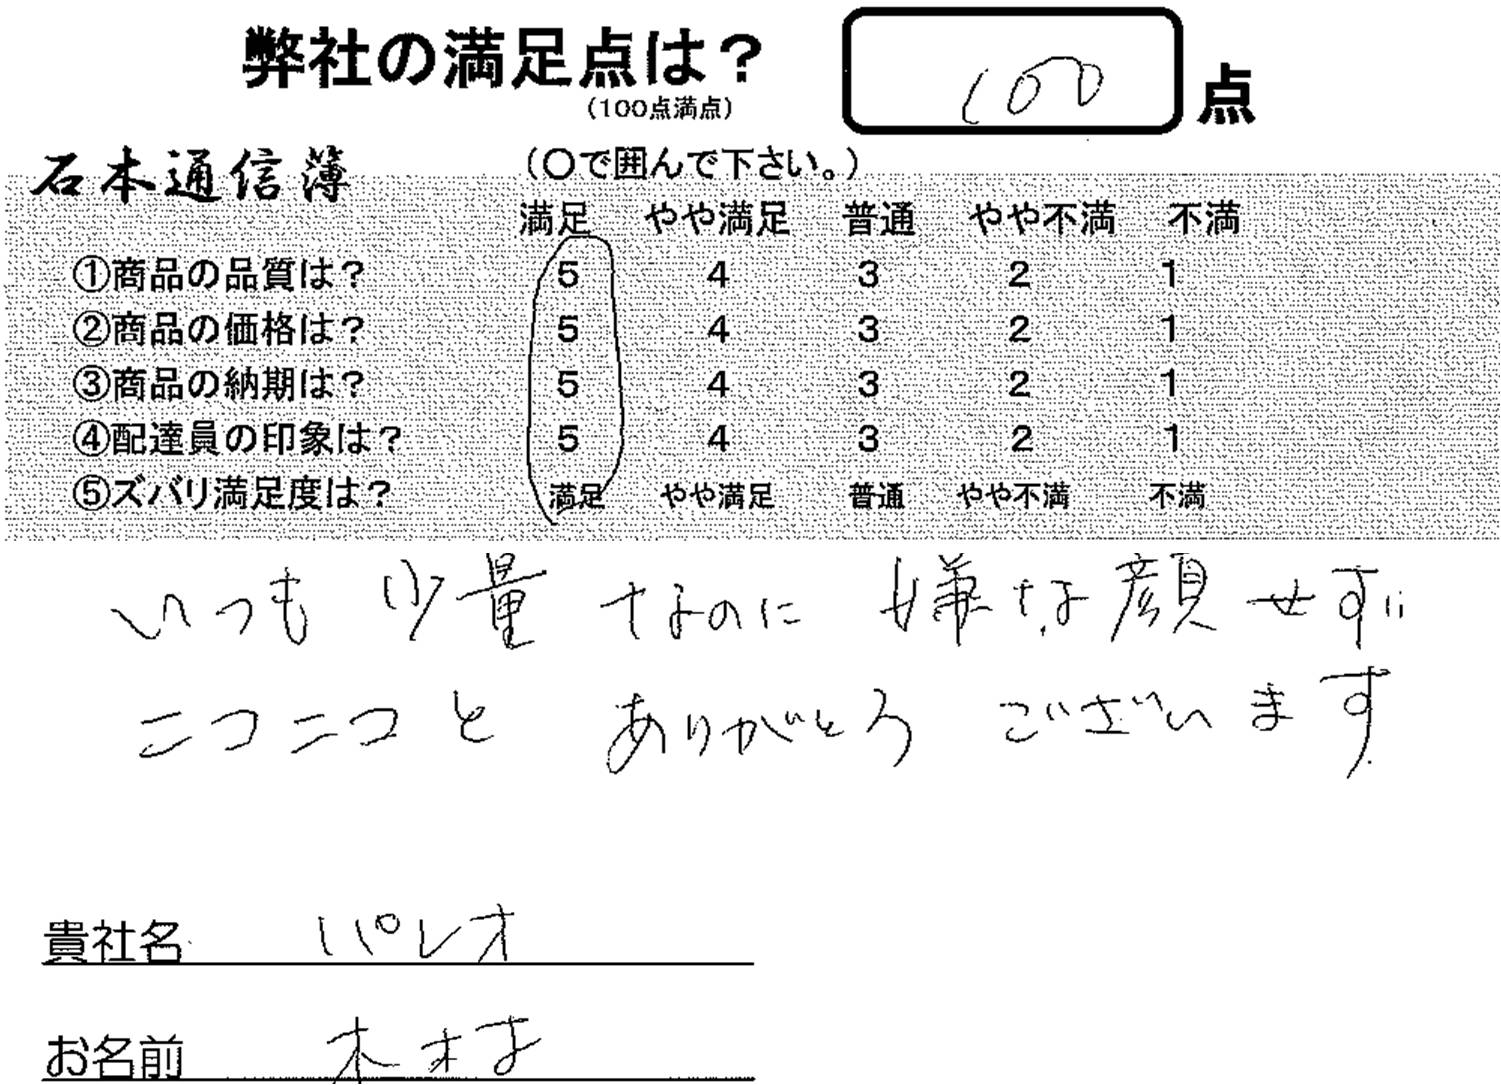 弊社の満足点は？
(100点満点)
100 点
石本通信簿
(〇で囲んで下さい。)
満足 やや満足 普通 やや不満 不満
①商品の品質は？ 5 4 3 2 1
②商品の価格は？ 5 4 3 2 1
③商品の納期は？ 5 4 3 2 1
④配達員の印象は？ 5 4 3 2 1
⑤ズバリ満足度は？ 満足 やや満足 普通 やや不満 不満
いつも 少量 なのに 嫌な顔せず
ニコニコと ありがとう ございます
貴社名 パレオ
お名前